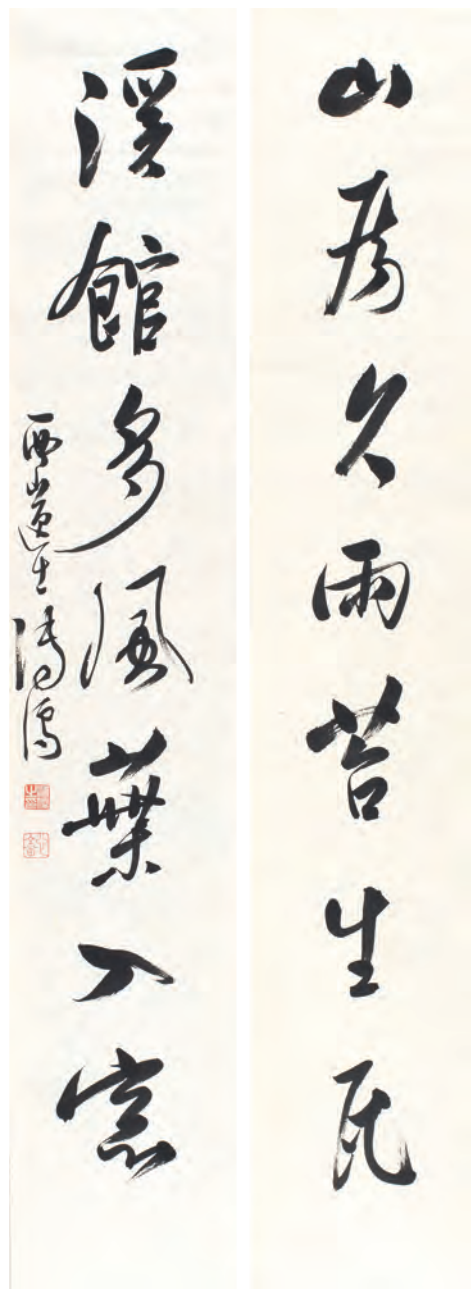 山房久雨苔生瓦
溪館多風葉入窗
西山逸士溥儒